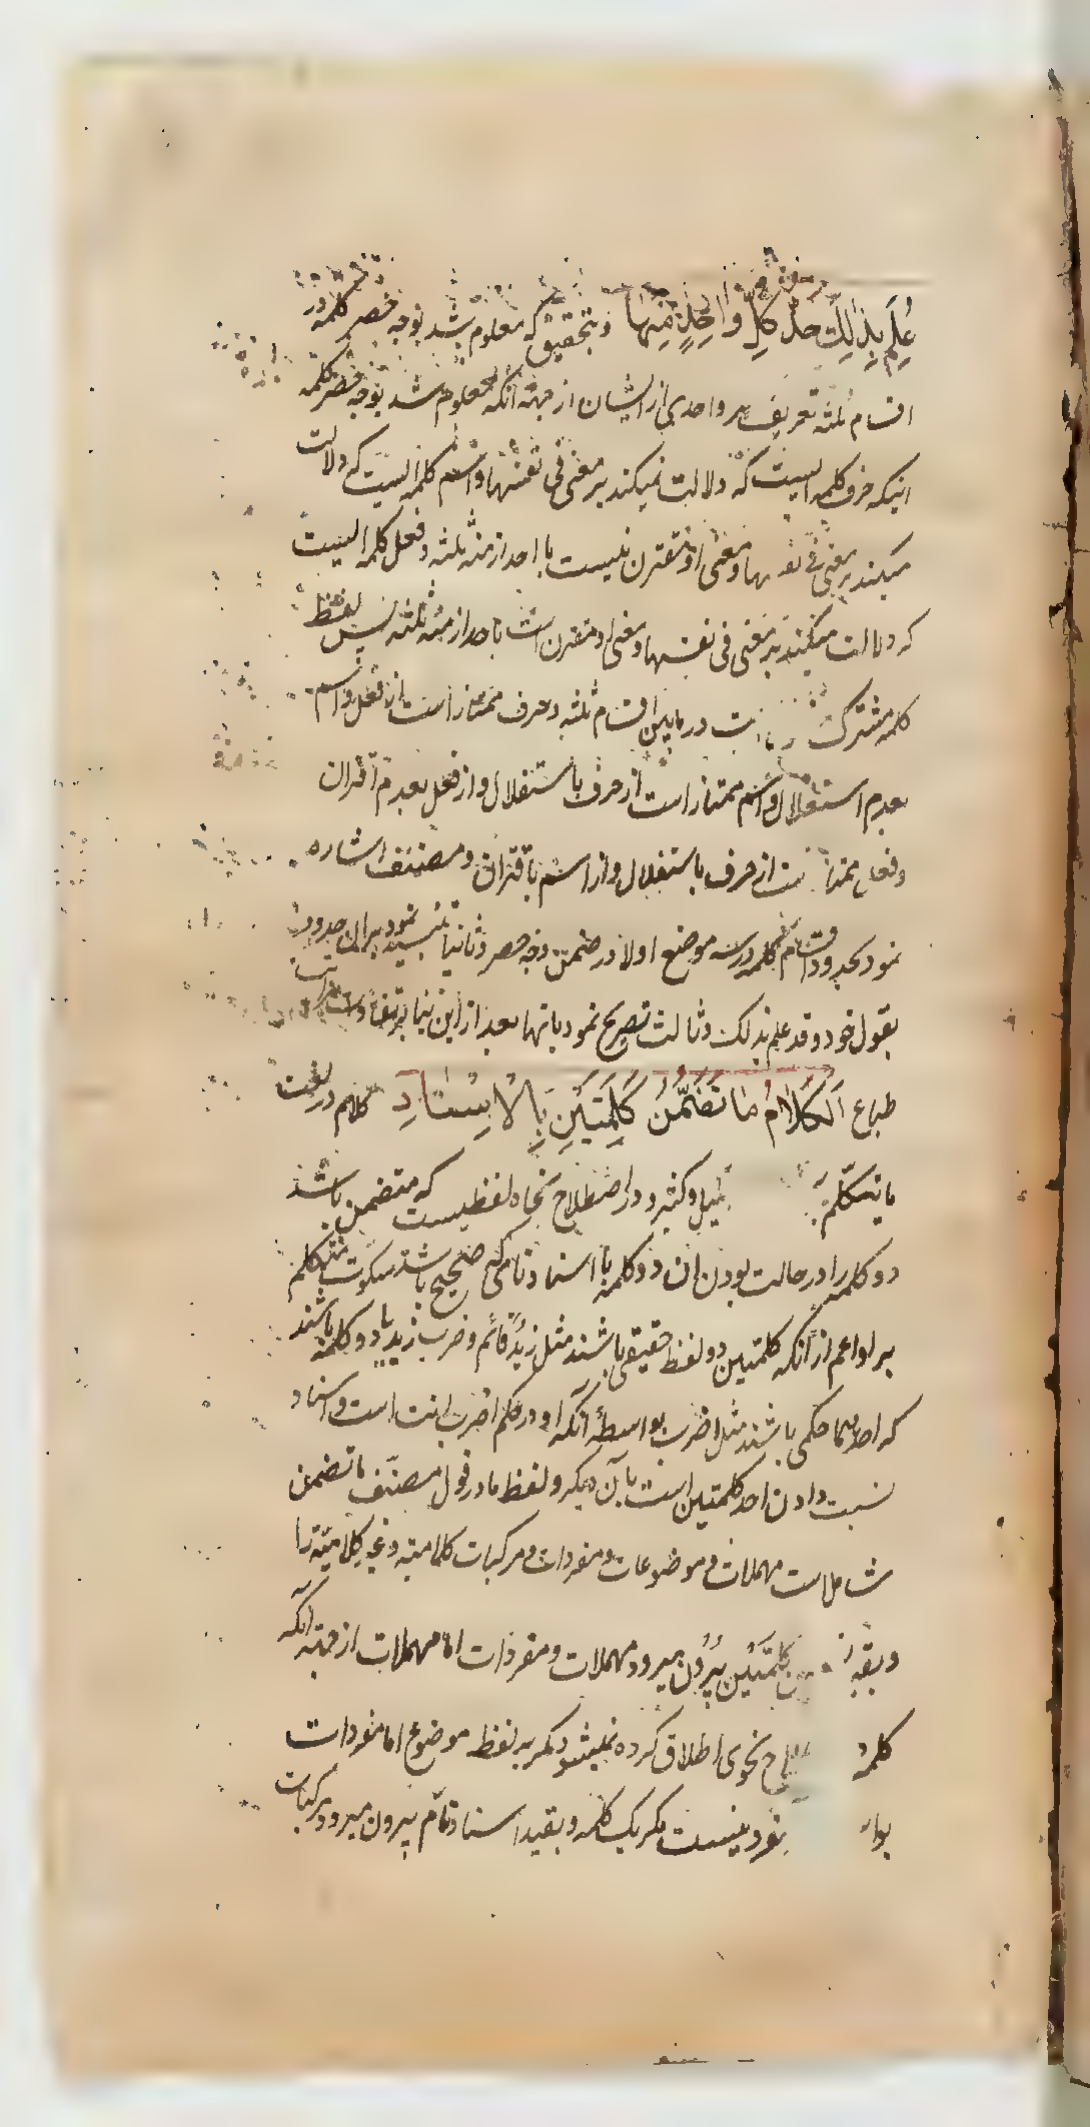 عُلِمَ بِذٰلِكَ حَدُّ كُلِّ وَاحِدٍ مِنْهَا و بتحقیق که معلوم شد بوجه حصر کلمه در
اقسام ثلثه تعریف هر واحدی از ایشان از جهة آنکه معلوم شد بوجه حصر کلمه
اینکه حرف کلمه ایست که دلالت نمیکند بر معنی فی نفسها و اسم کلمه ایست که دلالت
میکند بر معنی فی نفسها و معنی او مقترن نیست باحد ازمنه ثلثه و فعل کلمه ایست
که دلالت میکند بر معنی فی نفسها و معنی او مقترن است باحد ازمنه ثلثه پس لفظ
کلمه مشترک است در مابین اقسام ثلثه و حرف ممتاز است از فعل و اسم
بعدم استقلال و اسم ممتاز است از حرف باستقلال و از فعل بعدم اقتران
و فعل ممتاز است از حرف باستقلال و از اسم باقتران و مصنف اشاره
نمود بحدود اقسام کلمه در سه موضع اولا در ضمن وجه حصر و ثانیا تنبیه نمود بران حدود
بقول خود و قد علم بذلک و ثالث تصریح نمود بانها بعد از این بنا بر تفاوت مراتب
طباع اَلْكَلَامُ مَا تَضَمَّنَ كَلِمَتَيْنِ بِالْاِسْنَادِ کلام در لغت
ما یتکلّم به قلیل و کثیر و در اصطلاح نحاة لفظیست که متضمن باشد
دو کلمه را در حالت بودن ان دو کلمه با اسناد تامی که صحیح باشد سکوت متکلم
بر او اعم از آنکه کلمتین دو لفظ حقیقی باشند مثل زیدٌ قائم و ضرب زید یا دو کلمه باشند
که احدیهما حکمی باشند مثل اضرب بواسطه آنکه او در حکم اضرب انت است و اسناد
نسبت دادن احد کلمتین است بآن دیگر و لفظ ما در قول مصنّف ما تضمن
شاملست مهملات و موضوعات و مفردات و مرکبات کلامیه و غیر کلامیّة را
و بقید تضمن کلمتین بیرون میرود مهملات و مفردات اما مهملات از جهة آنکه
کلمه اصطلاح نحوی اطلاق کرده نمیشود مگر بر لفظ موضوع اما مفردات
مفرد نیست مگر یک کلمه و بقید اسناد تام بیرون میرود مرکبات